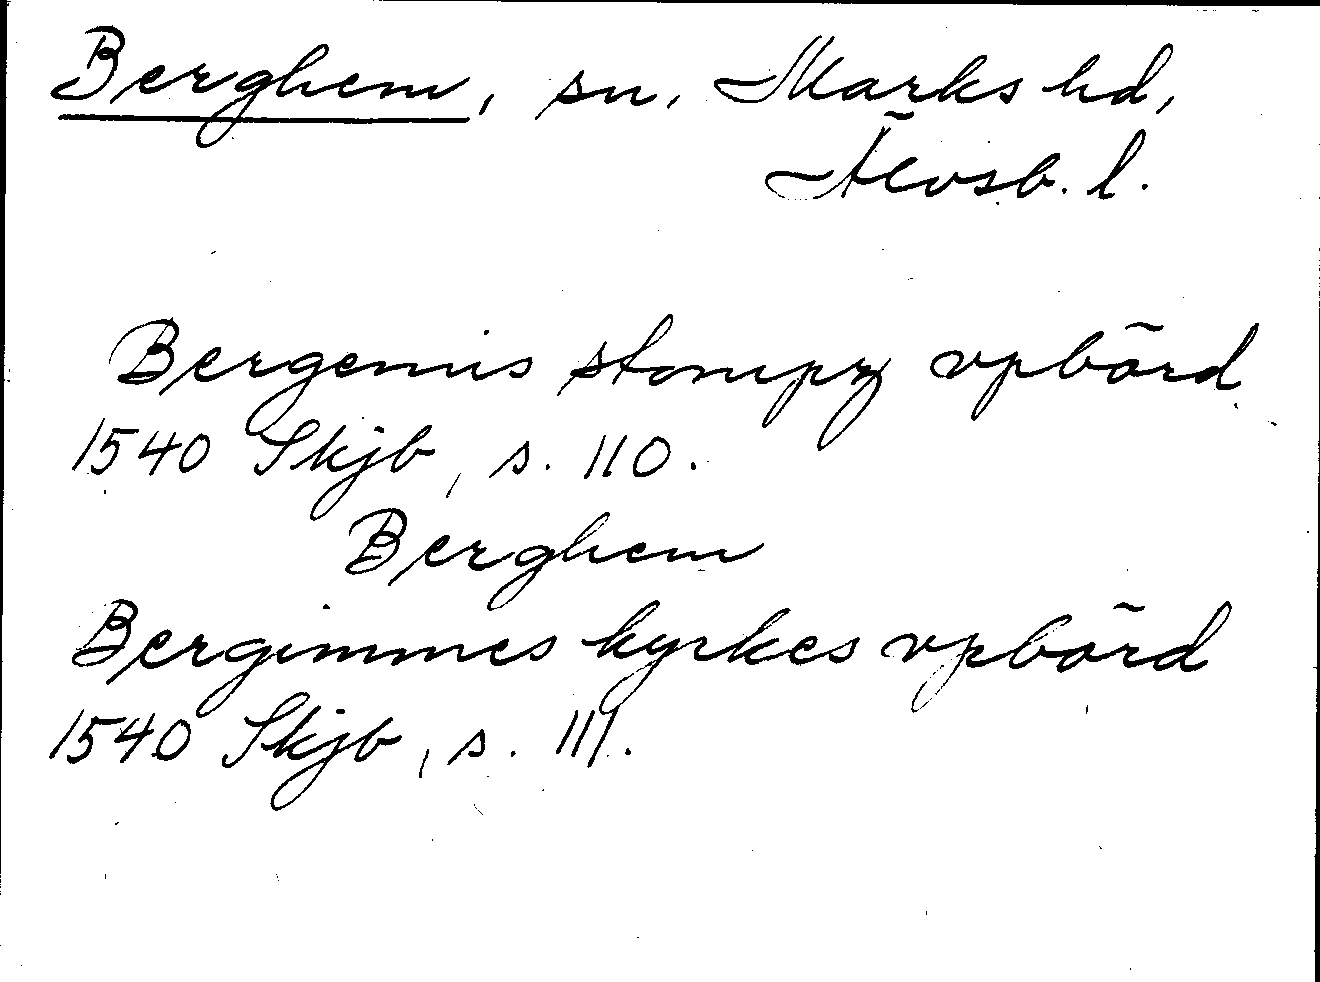 Berghem, sn, Marks hd,
Älvsb. l.
Bergemis stompz vpbörd
1540 Skjb, s. 110.
Berghem
Bergimmes kyrkes vpbörd
1540 Skjb, s. 111.